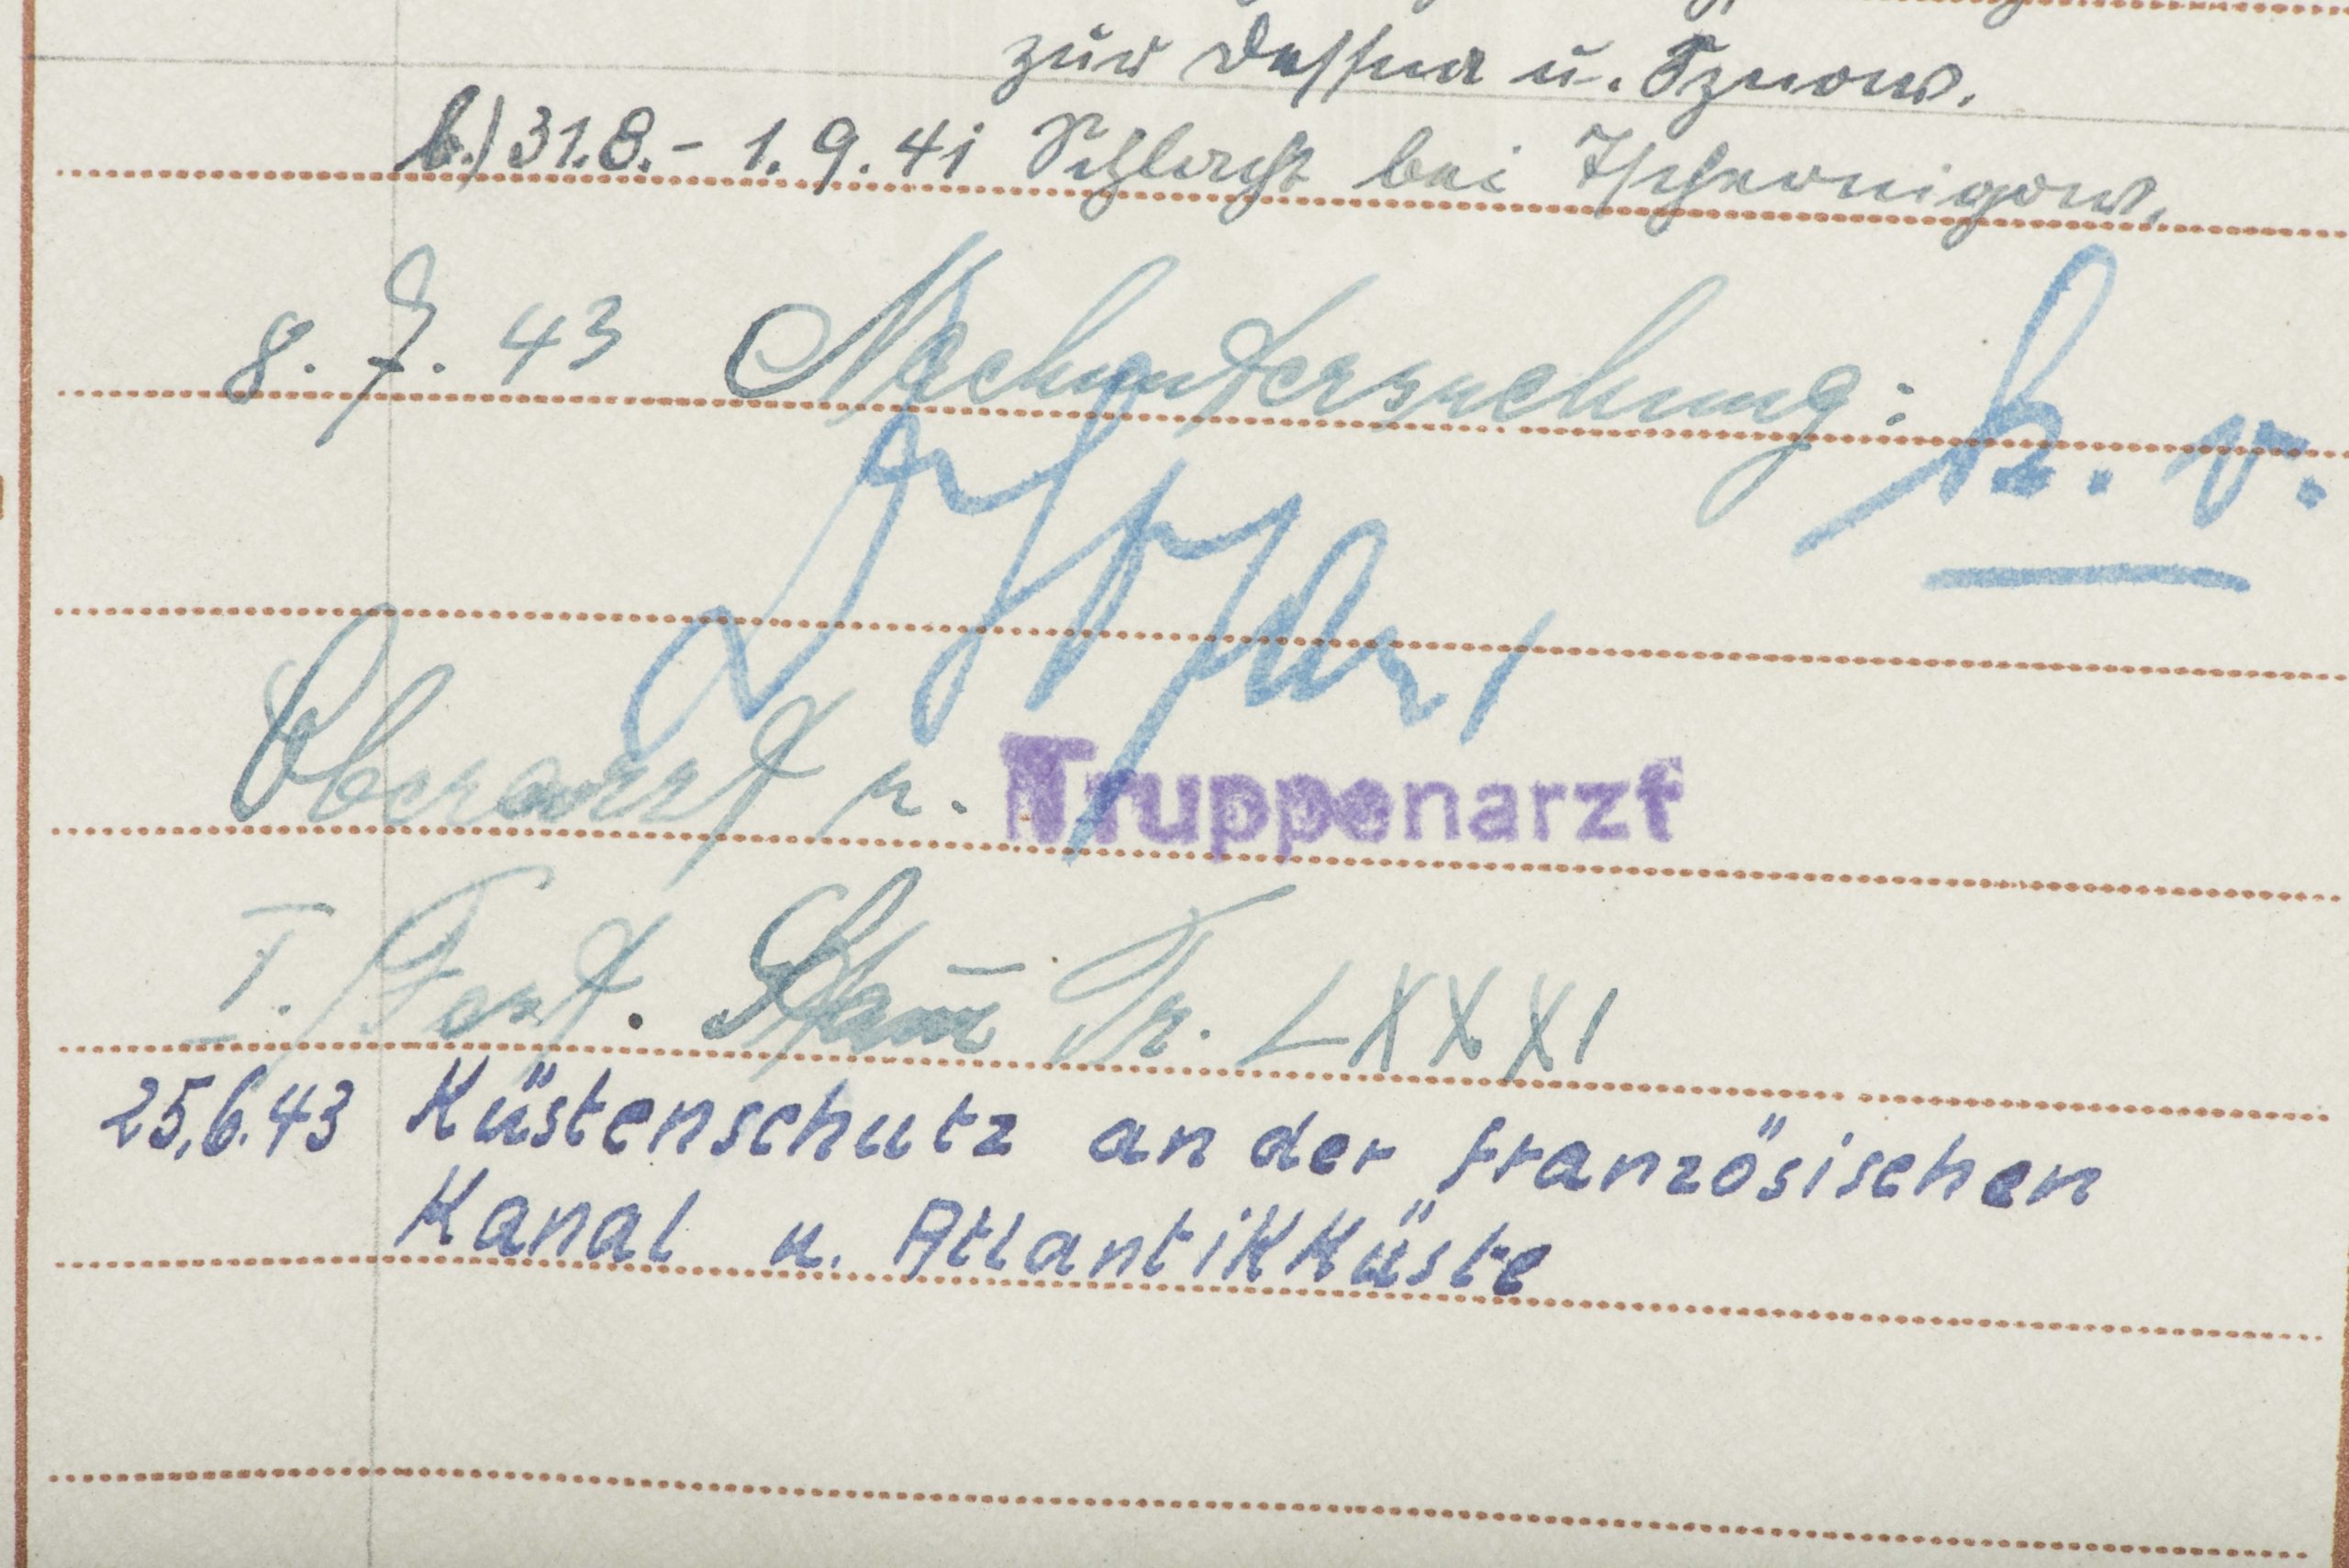 zur Dessna u. Sznow.
b.) 31.8. - 1.9.41 Schlacht bei Tschernigow.
8. 7. 43 Nachuntersuchung: k. v.
Oberarzt u. Truppenarzt
I. Fest. Stam̅ Tr. LXXXI
25.6.43 Küstenschutz an der französischen
Kanal u. Atlantikküste